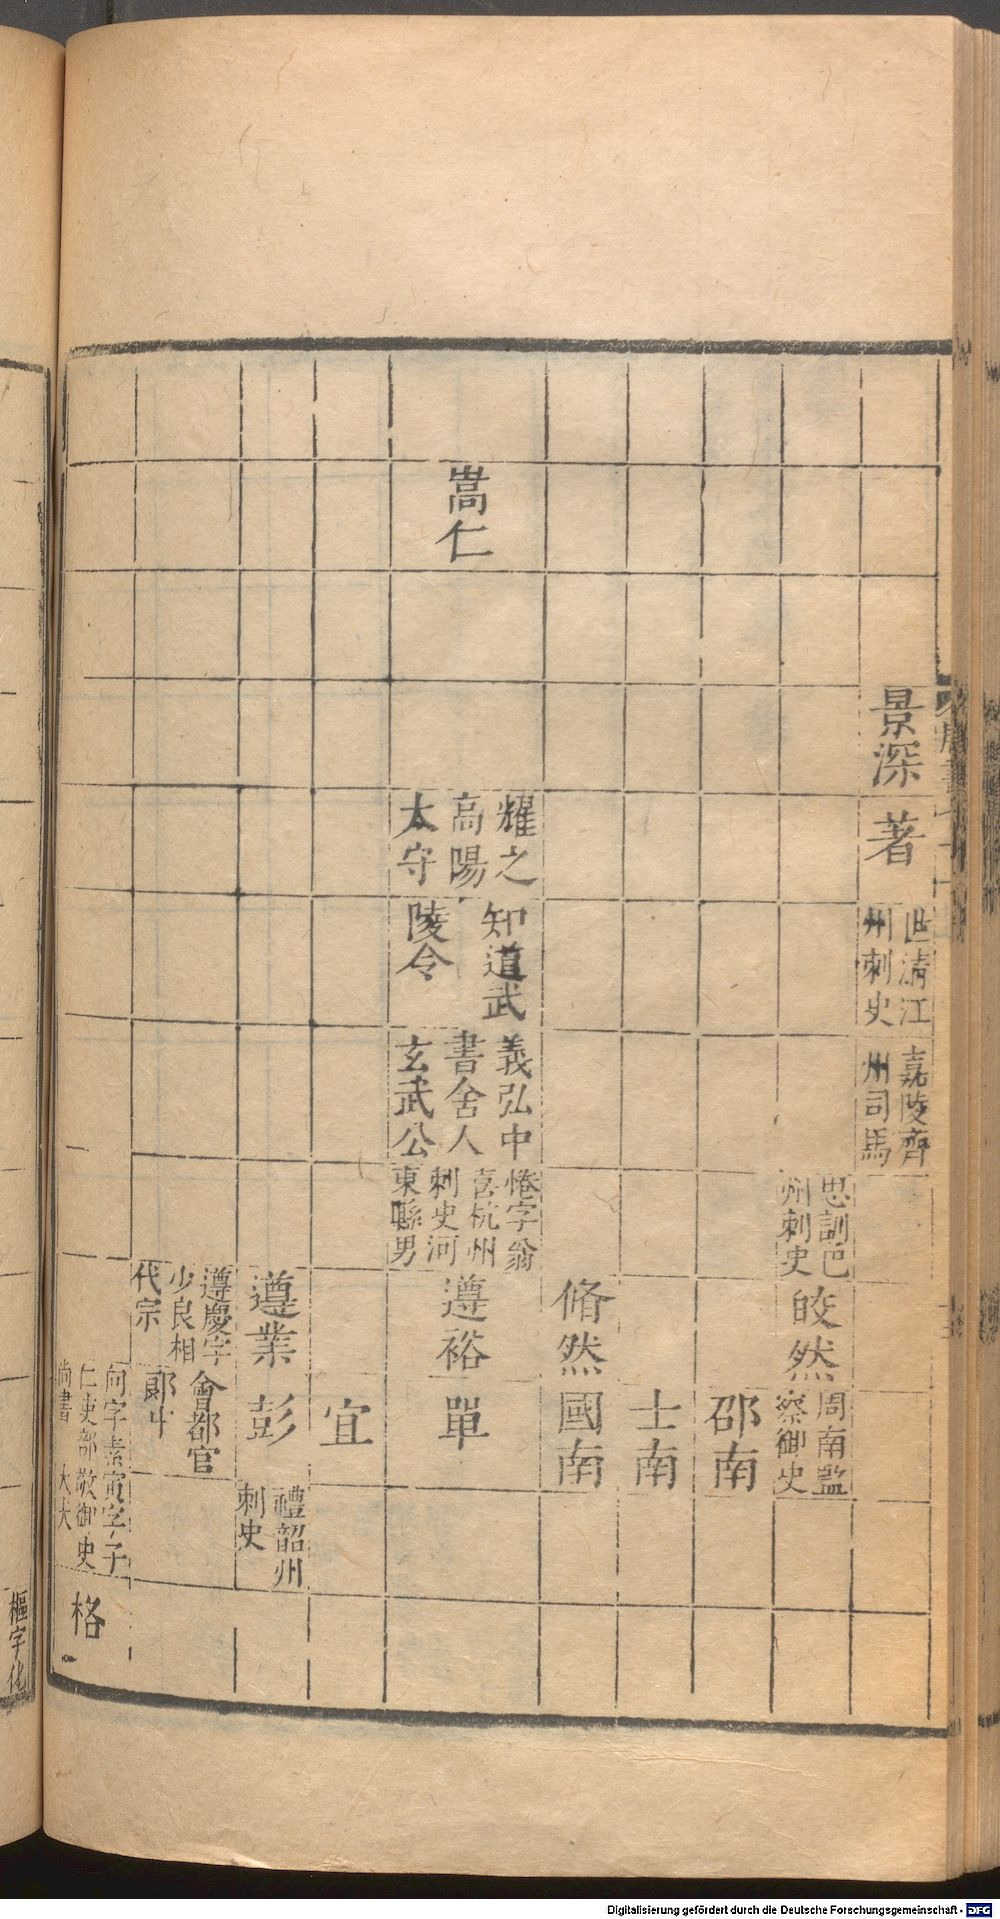 景深
著
世清江
州刺史
嘉陵齊
州司馬
思訓巴
州刺史
皎然
周南監
察御史
邵南
士南
脩然
國南
嵩仁
耀之
高陽
太守
知道武
陵令
義弘中
書舍人
玄武公
惓字翁
喜杭州
刺史河
東縣男
遵裕
單
宜
遵業
彭
禮韶州
刺史
遵慶字
少良相
代宗
會都官
郎中
向字素
仁吏部
尚書
寅字子
敬御史
大夫
格
樞字化
Digitalisierung gefördert durch die Deutsche Forschungsgemeinschaft - DFG